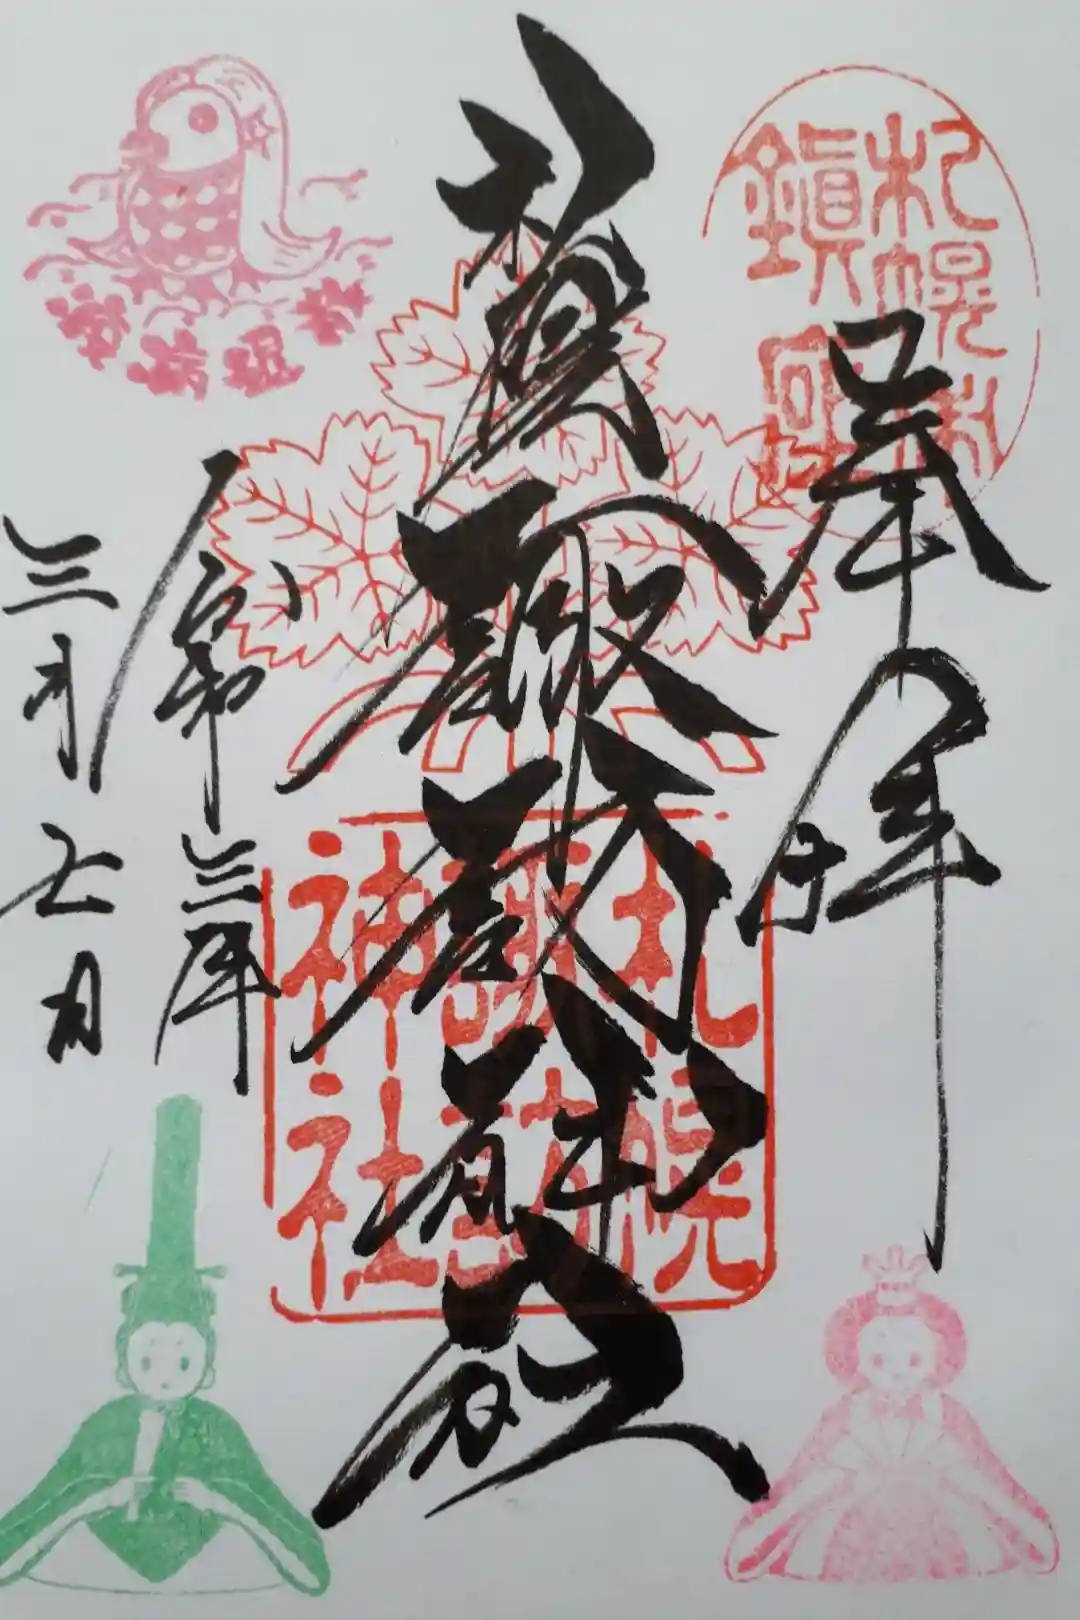 奉拝
札幌村
鎮守
札幌諏訪神社
札幌
諏訪
神社
令和三年
三月七日
疫病退散